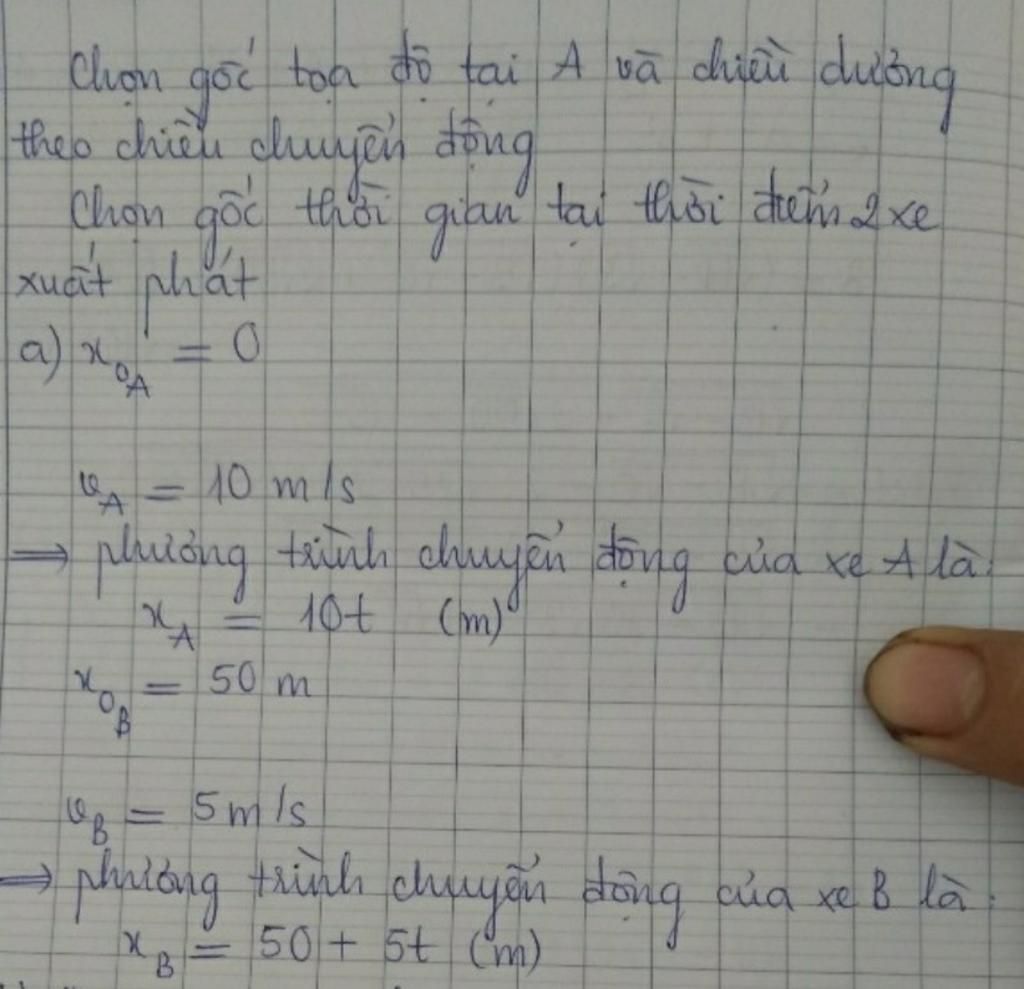 Chọn gốc tọa độ tại A và chiều dương
theo chiều chuyển động
Chọn gốc thời gian tại thời điểm 2 xe
xuất phát
a) x₀A = 0
vA = 10 m/s
⟹ phương trình chuyển động của xe A là:
xA = 10t (m)
x₀B = 50 m
vB = 5 m/s
⟹ phương trình chuyển động của xe B là:
xB = 50 + 5t (m)